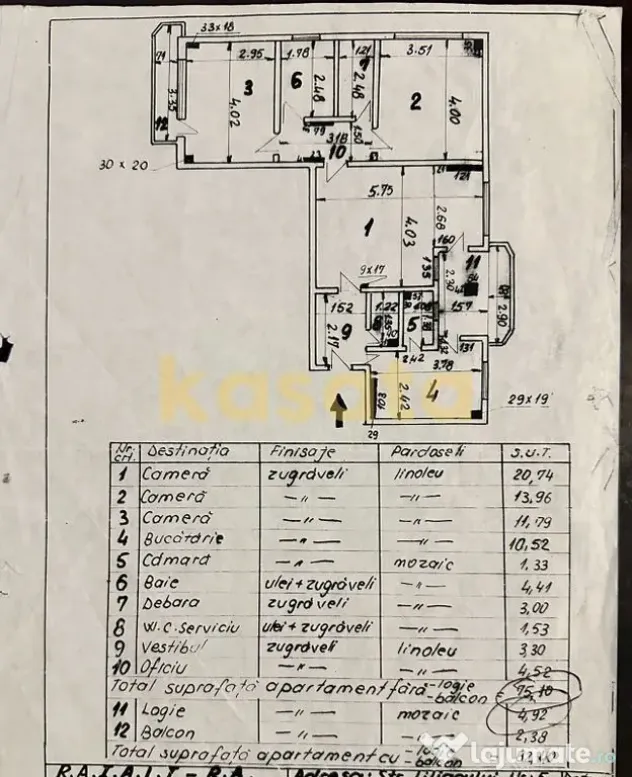 33×18
71
2.95
1.78
1.21
3.51
3.35
3
6
4.02
2.48
2.48
2
4.00
12
79
3.18
150
10
30 × 20
121
5.75
1
4.03
2.68
160
11
9×17
135
2.30
152
1.22
5
157
2.90
9
2.17
131
2.42
3.78
4
2.42
108
29×19
29
kasata
Nr. crt. Destinația Finisaje Pardoseli S.U.T.
1 Cameră zugrăveli linoleu 20,74
2 Cameră —„— —„— 13,96
3 Cameră —„— —„— 11,79
4 Bucătărie —„— —„— 10,52
5 Cămară —„— mozaic 1.33
6 Baie ulei + zugrăveli —„— 4,41
7 Debara zugrăveli —„— 3,00
8 W.C. serviciu ulei + zugrăveli —„— 1,53
9 Vestibul zugrăveli linoleu 3,30
10 Oficiu —„— —„— 4,52
Total suprafață apartament fără -logie -balcon = 75,10
11 Logie —„— mozaic 4,92
12 Balcon —„— —„— 2,38
Total suprafață apartament cu -balcon
lajumate.ro
R.A.I.A.L.I - R.A. Adresa: Str.